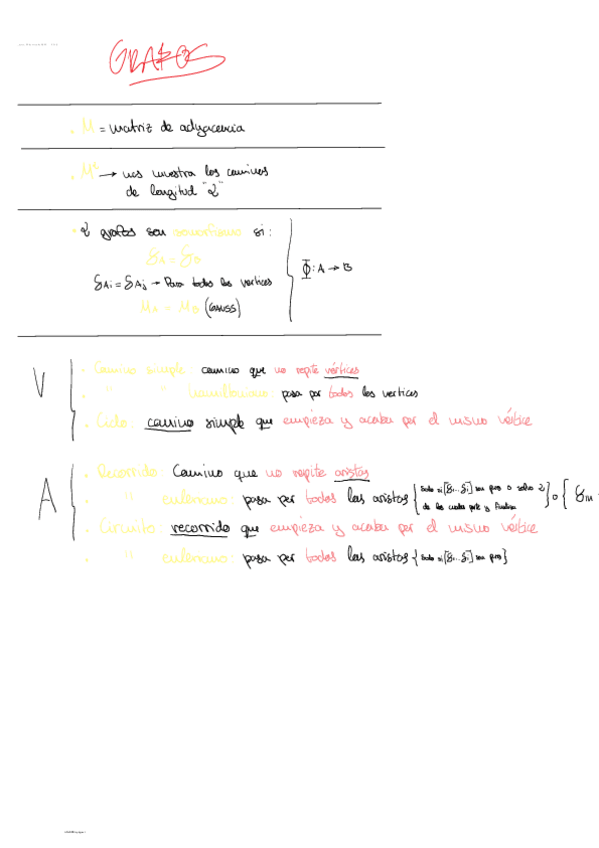 GRAFOS
• M = matriz de adyacencia
• M² → nos muestra los caminos
de longitud "2"
• 2 grafos son isomorfismo si:
δA = δB
δAi = δAj → Para todos los vertices
MA = MB (GAUSS)
Φ: A → B
V
• Camino simple: camino que no repite vértices
• " " hamiltoniano: pasa por todos los vertices
• Ciclo: camino simple que empieza y acaba por el mismo vértice
A
• Recorrido: Camino que no repite aristas
• " euleriano: pasa por todos las aristas { Solo si [δi...δj] son pares o salvo 2
de los cuales parte y finaliza } o { δm
• Circuito: recorrido que empieza y acaba por el mismo vértice
• " euleriano: pasa por todos las aristas { Solo si [δi...δj] son pares }